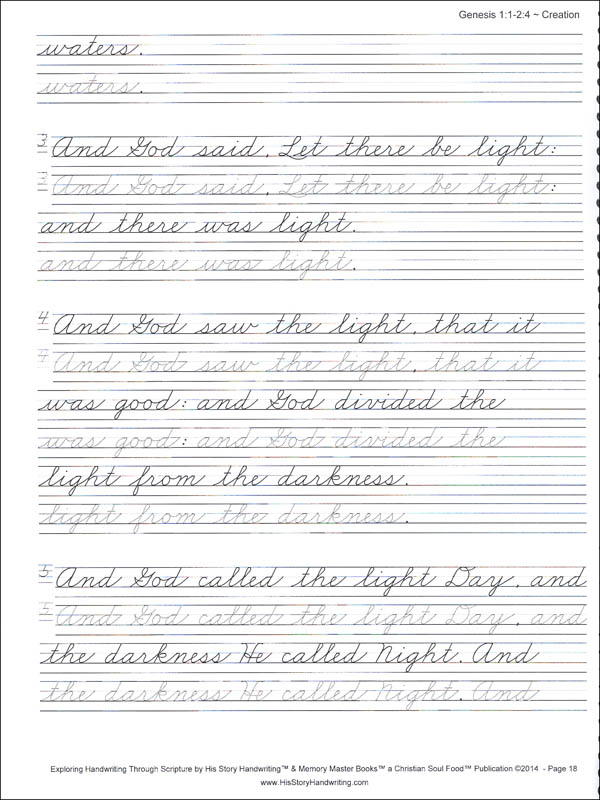 Genesis 1:1-2:4 ~ Creation
waters.
waters.
3 And God said, Let there be light:
3 And God said, Let there be light:
and there was light.
and there was light.
4 And God saw the light, that it
4 And God saw the light, that it
was good: and God divided the
was good: and God divided the
light from the darkness.
light from the darkness.
5 And God called the light Day, and
5 And God called the light Day, and
the darkness He called Night. And
the darkness He called Night. And
Exploring Handwriting Through Scripture by His Story Handwriting™ & Memory Master Books™ a Christian Soul Food™ Publication ©2014 - Page 18
www.HisStoryHandwriting.com